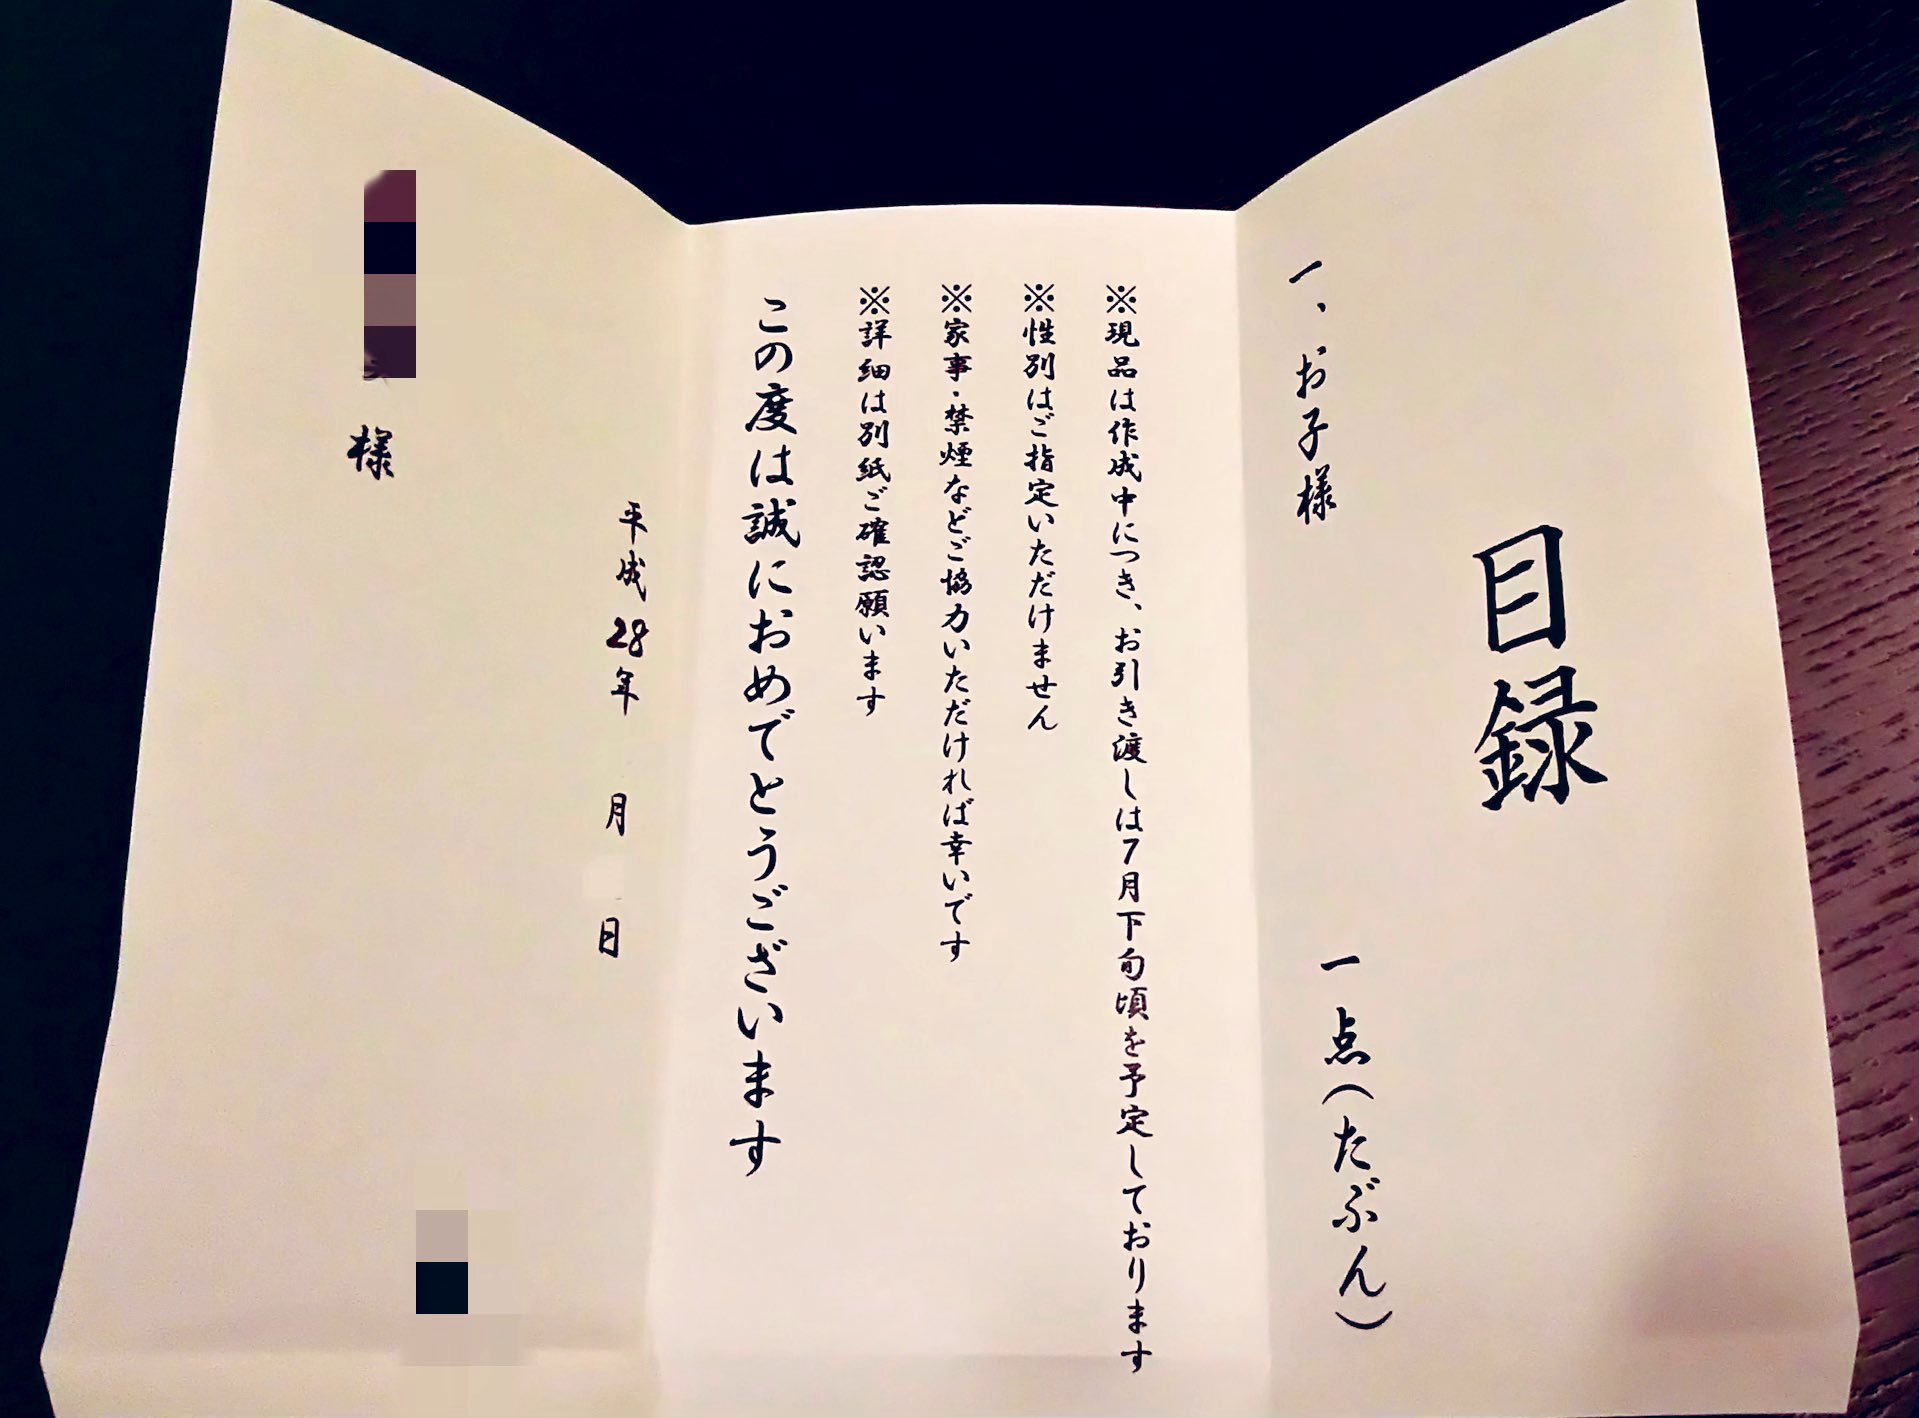 目録
一、お子様　一点(たぶん)
※現品は作成中につき、お引き渡しは7月下旬頃を予定しております
※性別はご指定いただけません
※家事・禁煙などご協力いただければ幸いです
※詳細は別紙ご確認願います
この度は誠におめでとうございます
平成28年　月　日
様